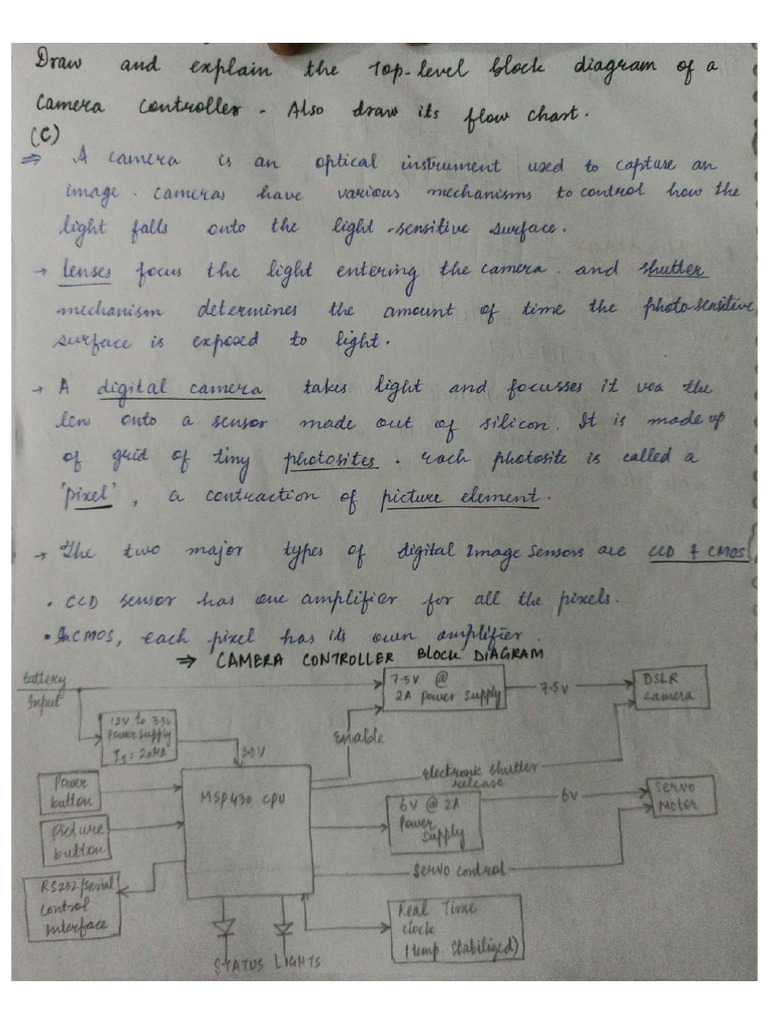 Draw and explain the Top-level block diagram of a
Camera Controller. Also draw its flow chart.
(C)
⇒ A camera is an optical instrument used to capture an
image. Cameras have various mechanisms to control how the
light falls onto the light-sensitive surface.
→ lenses focus the light entering the camera. and shutter
mechanism determines the amount of time the photosensitive
surface is exposed to light.
→ A digital camera takes light and focusses it via the
lens onto a sensor made out of silicon. It is made up
of grid of tiny photosites. Each photosite is called a
'pixel', a contraction of picture element.
→ The two major types of digital Image Sensors are CCD & CMOS
• CCD sensor has one amplifier for all the pixels.
• In CMOS, each pixel has its own amplifier.
⇒ CAMERA CONTROLLER BLOCK DIAGRAM
battery
Input
7.5V @
2A power supply
7.5V
DSLR
camera
12V to 3.3V
power supply
Iq = 20MA
3.3V
Enable
electronic shutter
release
Power
button
MSP430 CPU
6V @ 2A
Power
supply
6V
Servo
Motor
Picture
button
servo control
RS232/serial
control
interface
Real Time
clock
(temp. stabilized)
STATUS LIGHTS